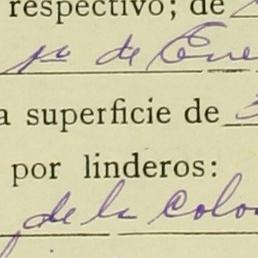 respectivo; de
1º de Ene
a superficie de
por linderos:
de la Colo